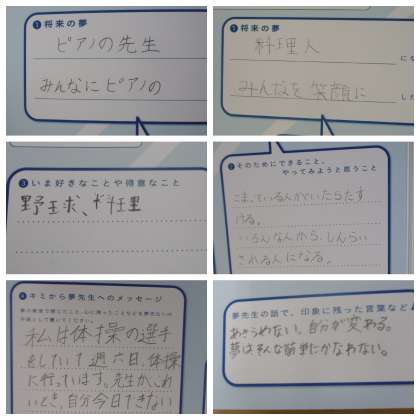 ❶将来の夢
ピアノの先生
みんなに ピアノの
❶将来の夢
料理人
にな
みんなを 笑顔に
した
❸いま好きなことや得意なこと
野球、料理
❷そのためにできること、
やってみようと思うこと
こまっている人がいたらたす
ける。
いろんな人から、しんらい
される人になる。
❹キミから夢先生へのメッセージ
私は体操の選手
をしていて週六日、体操
に行っています。先生が、これ
いとき、自分今日できない
夢先生の話で、印象に残った言葉など
あきらめない、自分が変わる。
夢はそんな簡単にかなわない。